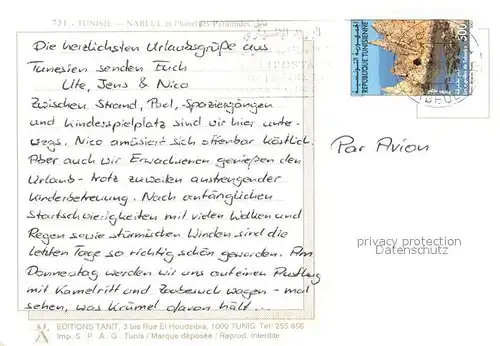 731 - TUNISIE - NABEUL et l'hôtel les Pyramides
Die herzlichsten Urlaubsgrüße aus
Tunesien senden Euch
Ute, Jens & Nico
Zwischen Strand, Pool, Spaziergängen
und Kinderspielplatz sind wir hier unter-
wegs. Nico amüsiert sich offenbar köstlich.
Aber auch wir Erwachsenen genießen den
Urlaub - trotz zuweilen anstrengender
Kinderbetreuung. Nach anfänglichen
Startschwierigkeiten mit vielen Wolken und
Regen sowie stürmischen Winden sind die
letzten Tage so richtig schön geworden. Am
Donnerstag werden wir uns auf einen Ausflug
mit Kamelritt und Zoobesuch wagen - mal
sehen, was Krümel davon hält...
REPUBLIQUE TUNISIENNE
300
Par Avion
privacy protection
Datenschutz
EDITIONS TANIT, 3 bis Rue El Houdeibia, 1000 TUNIS. Tél: 255 856
Imp. S. P. A. G. Tunis / Marque déposée / Reprod. interdite